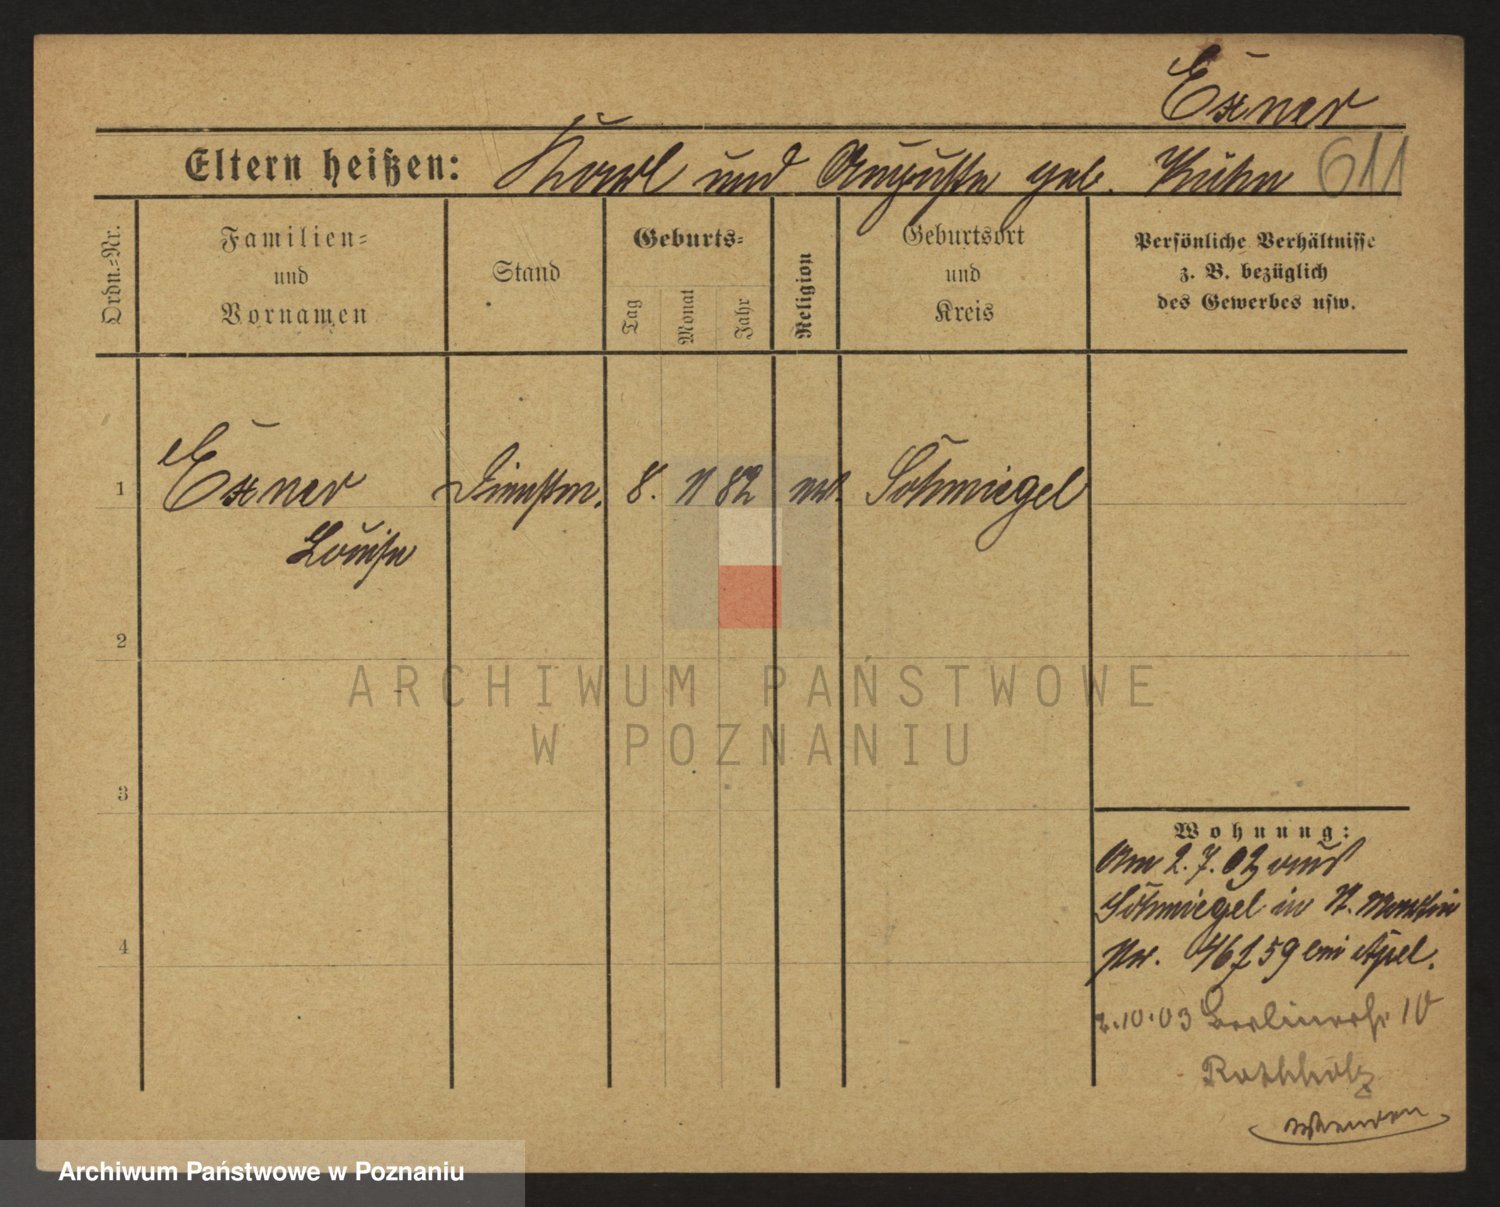 Exner
Eltern heißen: Karl und Auguste geb. Kuhn 611
Ordn.-Nr.
Familien-
und
Vornamen
Stand
Geburts-
Tag
Monat
Jahr
Religion
Geburtsort
und
Kreis
Persönliche Verhältnisse
z. B. bezüglich
des Gewerbes usw.
1 Exner Dienstm. 8. 11 82 ev. Schmiegel
Louise
2
3
4
Wohnung:
Am 2.7.03 aus
Schmiegel in St. Martin
Nr. 46/59 bei Apel.
2.10.03 Berlinerstr 10
Rothholz
wenden
ARCHIWUM PAŃSTWOWE
W POZNANIU
Archiwum Państwowe w Poznaniu